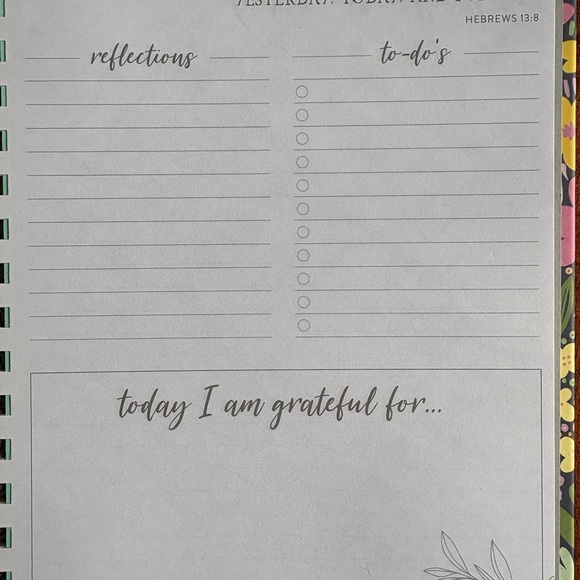 YESTERDAY, TODAY, AND
HEBREWS 13:8
reflections
to-do's
today I am grateful for...